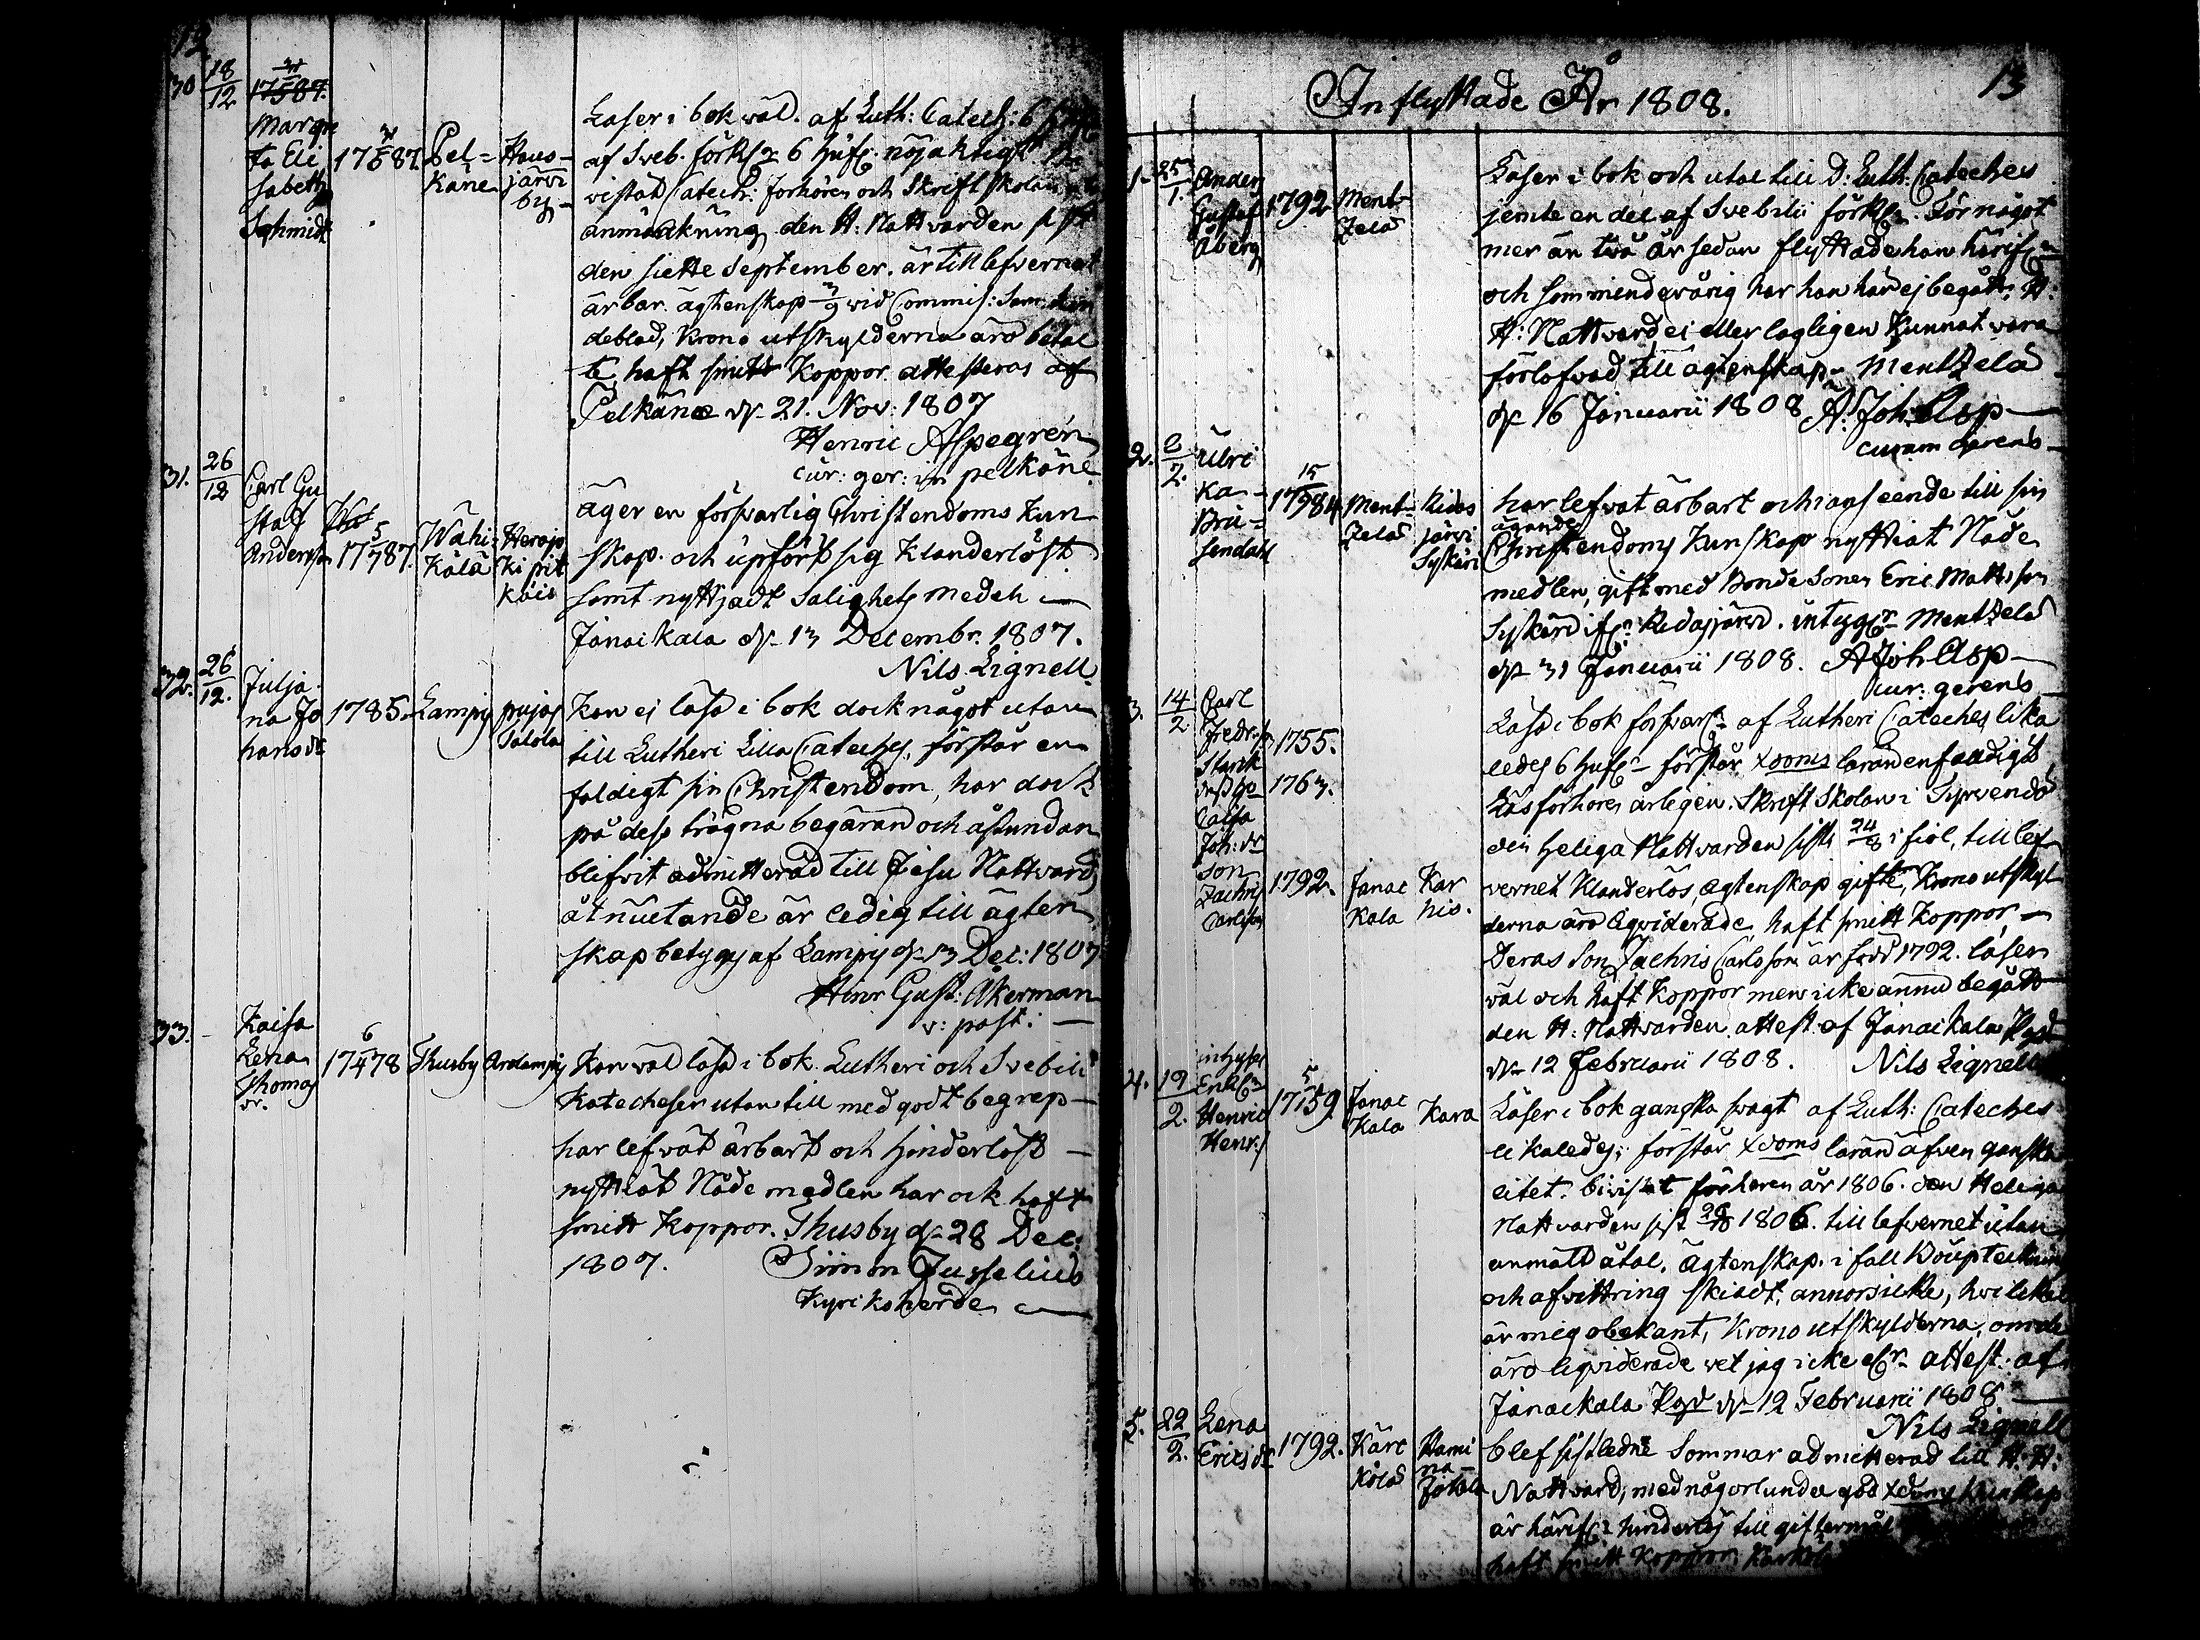 12
30 18/12 17 3/5 87.
Margre
ta Eli
sabeth
Schmidt
17 3/5 87.
Pel=
käne
Haus-
järvi
by-
Läser i bok väl. af Luth: Catech: 6
af Sveb. förkl:r 6 hufs. nöjaktigt
vistat Catech: forhören och Skriftskolan
anmärkning den H: Nattvarden sist
den siette September. är till lefvernet
ärbar. ägtenskap wid Commis:
deblad, Krono utskylderna äro betal
te, haft smitt Koppor. attesteras af
Pelkäne d. 21. Nov: 1807
Henric Aspegrén
cur: ger: in pelkäne.
31. 26/12
Carl Gu
staf
Anderss:
17 5/7 87.
Wåhi=
kälä
Herajo
ki
äger en försvarlig Christendoms kun
skap. och upfört sig klanderlöst
samt nyttjadt Salighets medel
Janackala d. 13 Decembr. 1807.
Nils Lignell.
32. 26/12.
Julja
na Jo
hans dr
1785.
Lampis
pujos
Salola
Kan ej läsa i bok dock något utan
till Lutheri Lilla Cateches, förstår en
faldigt sin Christendom, har dock
på dess trägna begäran och åstundan
blifvit admitterad till Jesu Nattvards
åtniutande är ledig till ägten
skap betygas af Lampis d. 13 Dec: 1807
Hinr Gust: Åkerman
v: past:
33. -
Kaisa
Lena
Thomas
dr.
17 6/4 78
Thusby
Arolampi
Kan väl läsa i bok Lutheri och Svebilii
Katecheser utan till med godt begrep
har lefvat ärbart och hinderlöst
nyttiat Nåde medlen har ock haft
smitt Koppor. Thusby d. 28 Dec:
1807. Simon Jusselius
Kyrikoherde
13
Inflyttade År 1808.
1. 25/1.
Anders
Gustaf
Åberg
1792
Ment-
zelas
Läser i bok och utal till D: Luth: Cateches
jemte en del af Svebilii förkl:r. För något
mer än två år sedan flyttade han härifr:n
och som minderårig har han här ej begått H:
H: Nattvard ei eller lagligen kunnat vara
förlofvad till ägtenskap. Mentzelas
d. 16 Januarii 1808 A: Joh. Asp
curam gerens
2. 2/2.
Ulri
ka
Bru=
sendahl
17 15/9 84
Ment-
zelas
Kidas
järvi
Syskäri
har lefvat ärbart och i anseende till sin
ägande
Christendoms kunskap nyttiat Nåde
medlen, gift med Bonde Sonen Eric Matts son
Syskäri ifr:n Kidasjärvi. intygar Mentzelas
d. 31 Januarii 1808. A Joh Asp
cur: gerens
3. 14/2
Carl
Fredr:n
Starck
Hst: Ho
Caisa
Joh: dr
Son
Zachris
Carlsson
1755.
1763.
1792.
Janac
kala
Kar
nis.
Läsa i bok försvarl: af Lutheri Cateches lika
ledes 6 hufs:r förstår xdoms läran enfaldigt
Läsförhören årligen. Skrift Skolan i Syrvendo
den heliga Nattvarden sist 24/8 i fiol, till lef
vernet klanderlös, ägtenskap gifte, Krono utskyl
derna äro liqviderade haft smitt Koppor
Deras Son Zachris Carlsson är född 1792. läser
väl och haft Koppor men icke ännu begått
den H: Nattvarden attest: af Janackala Pgd
d. 12 Februarii 1808. Nils Lignell
4. 19/2.
inhyses
Enkl:n
Henric
Henrs:
17 5/1 59
Janac
kala
Kara
Läser i bok ganska svagt af Luth: Cateches
likaledes; förstår xdoms läran äfven ganska
litet. bivistat förhören år 1806. den Heliga
Nattvarden sist 1806. till lefvernet utan
anmäld åtal. ägtenskap. i fall Bouptekning
och afvittring skiedt, annors icke, hvilket
är mig obekant, Krono utskylderna, om de
äro liqviderade vet jag icke el:r attest: af
Janackala Pgd d. 12 Februarii 1808
Nils Lignell
5. 22/2.
Lena
Erics dr
1792.
Käre
kölas
Hami
na
Jatola
blef sistledne Sommar admitterad till H: H:
Nattvard, med någorlunda god xdoms kunskap
är härifr:n hinderlös till giftermål
haft smitt Koppor